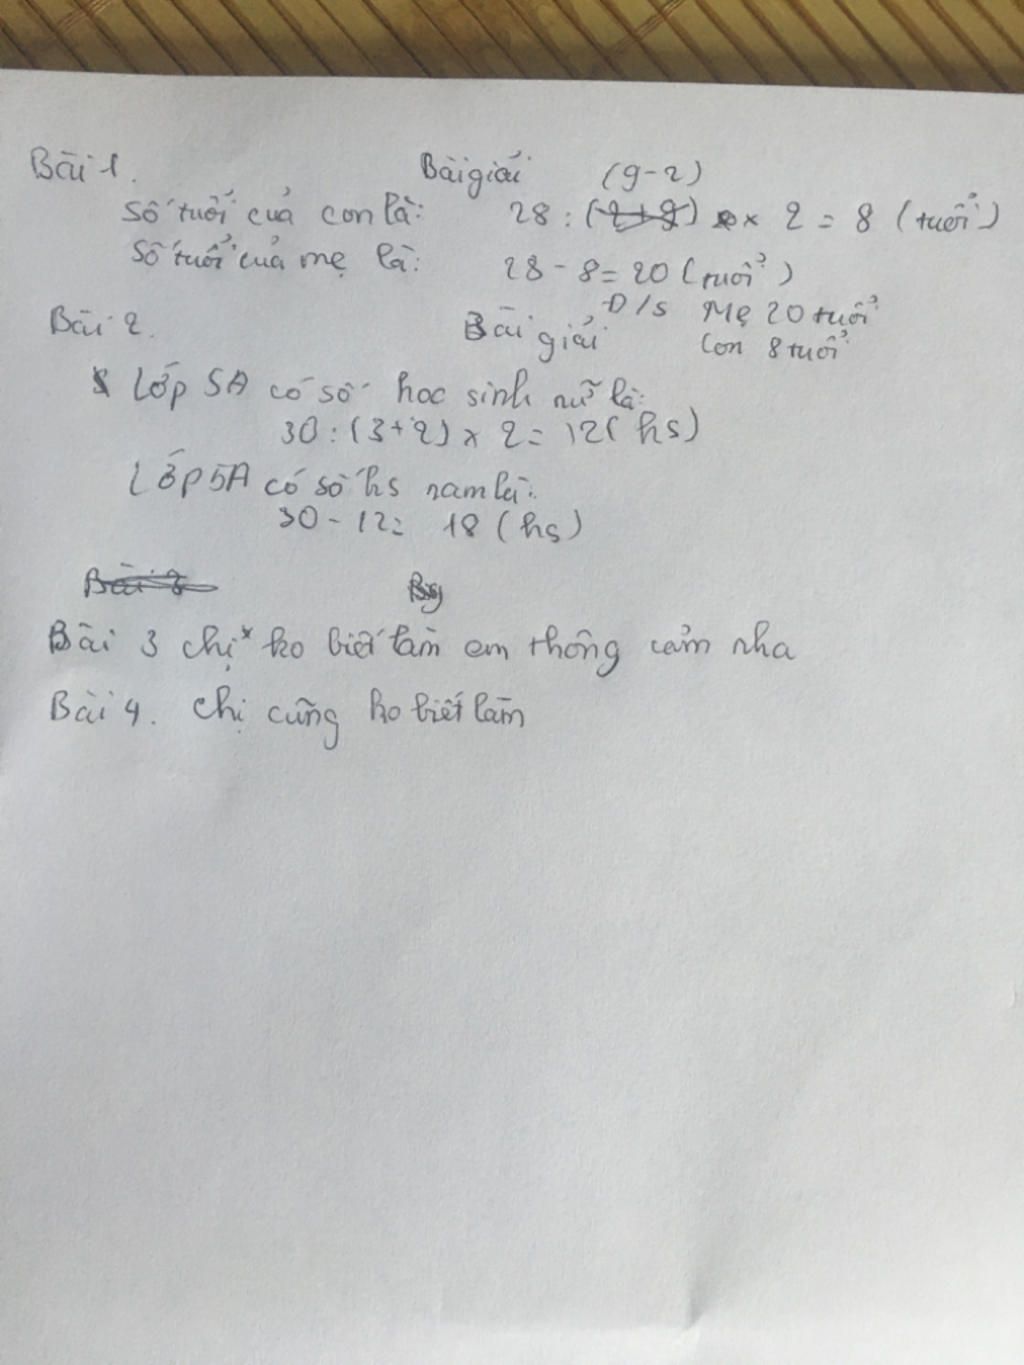 Bài 1. Bài giải (9-2)
Số tuổi của con là: 28 : (2+9) x 2 = 8 (tuổi)
Số tuổi của mẹ là: 28 - 8 = 20 (tuổi)
Đ/s Mẹ 20 tuổi
Bài 2. Bài giải Con 8 tuổi
Lớp 5A có số học sinh nữ là:
30 : (3+2) x 2 = 12 (hs)
Lớp 5A có số hs nam là:
30 - 12 = 18 (hs)
Bài 3 chị ko biết làm em thông cảm nha
Bài 4. Chị cũng ko biết làm